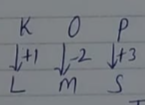 K O P
↓+1 ↓-2 ↓+3
L M S